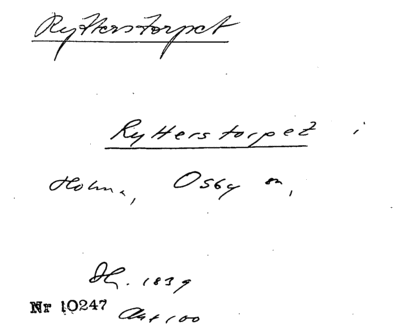 Rytterstorpet
Rytterstorpet i
Holma, Osby sn,
Dh. 1839
Nr 10247